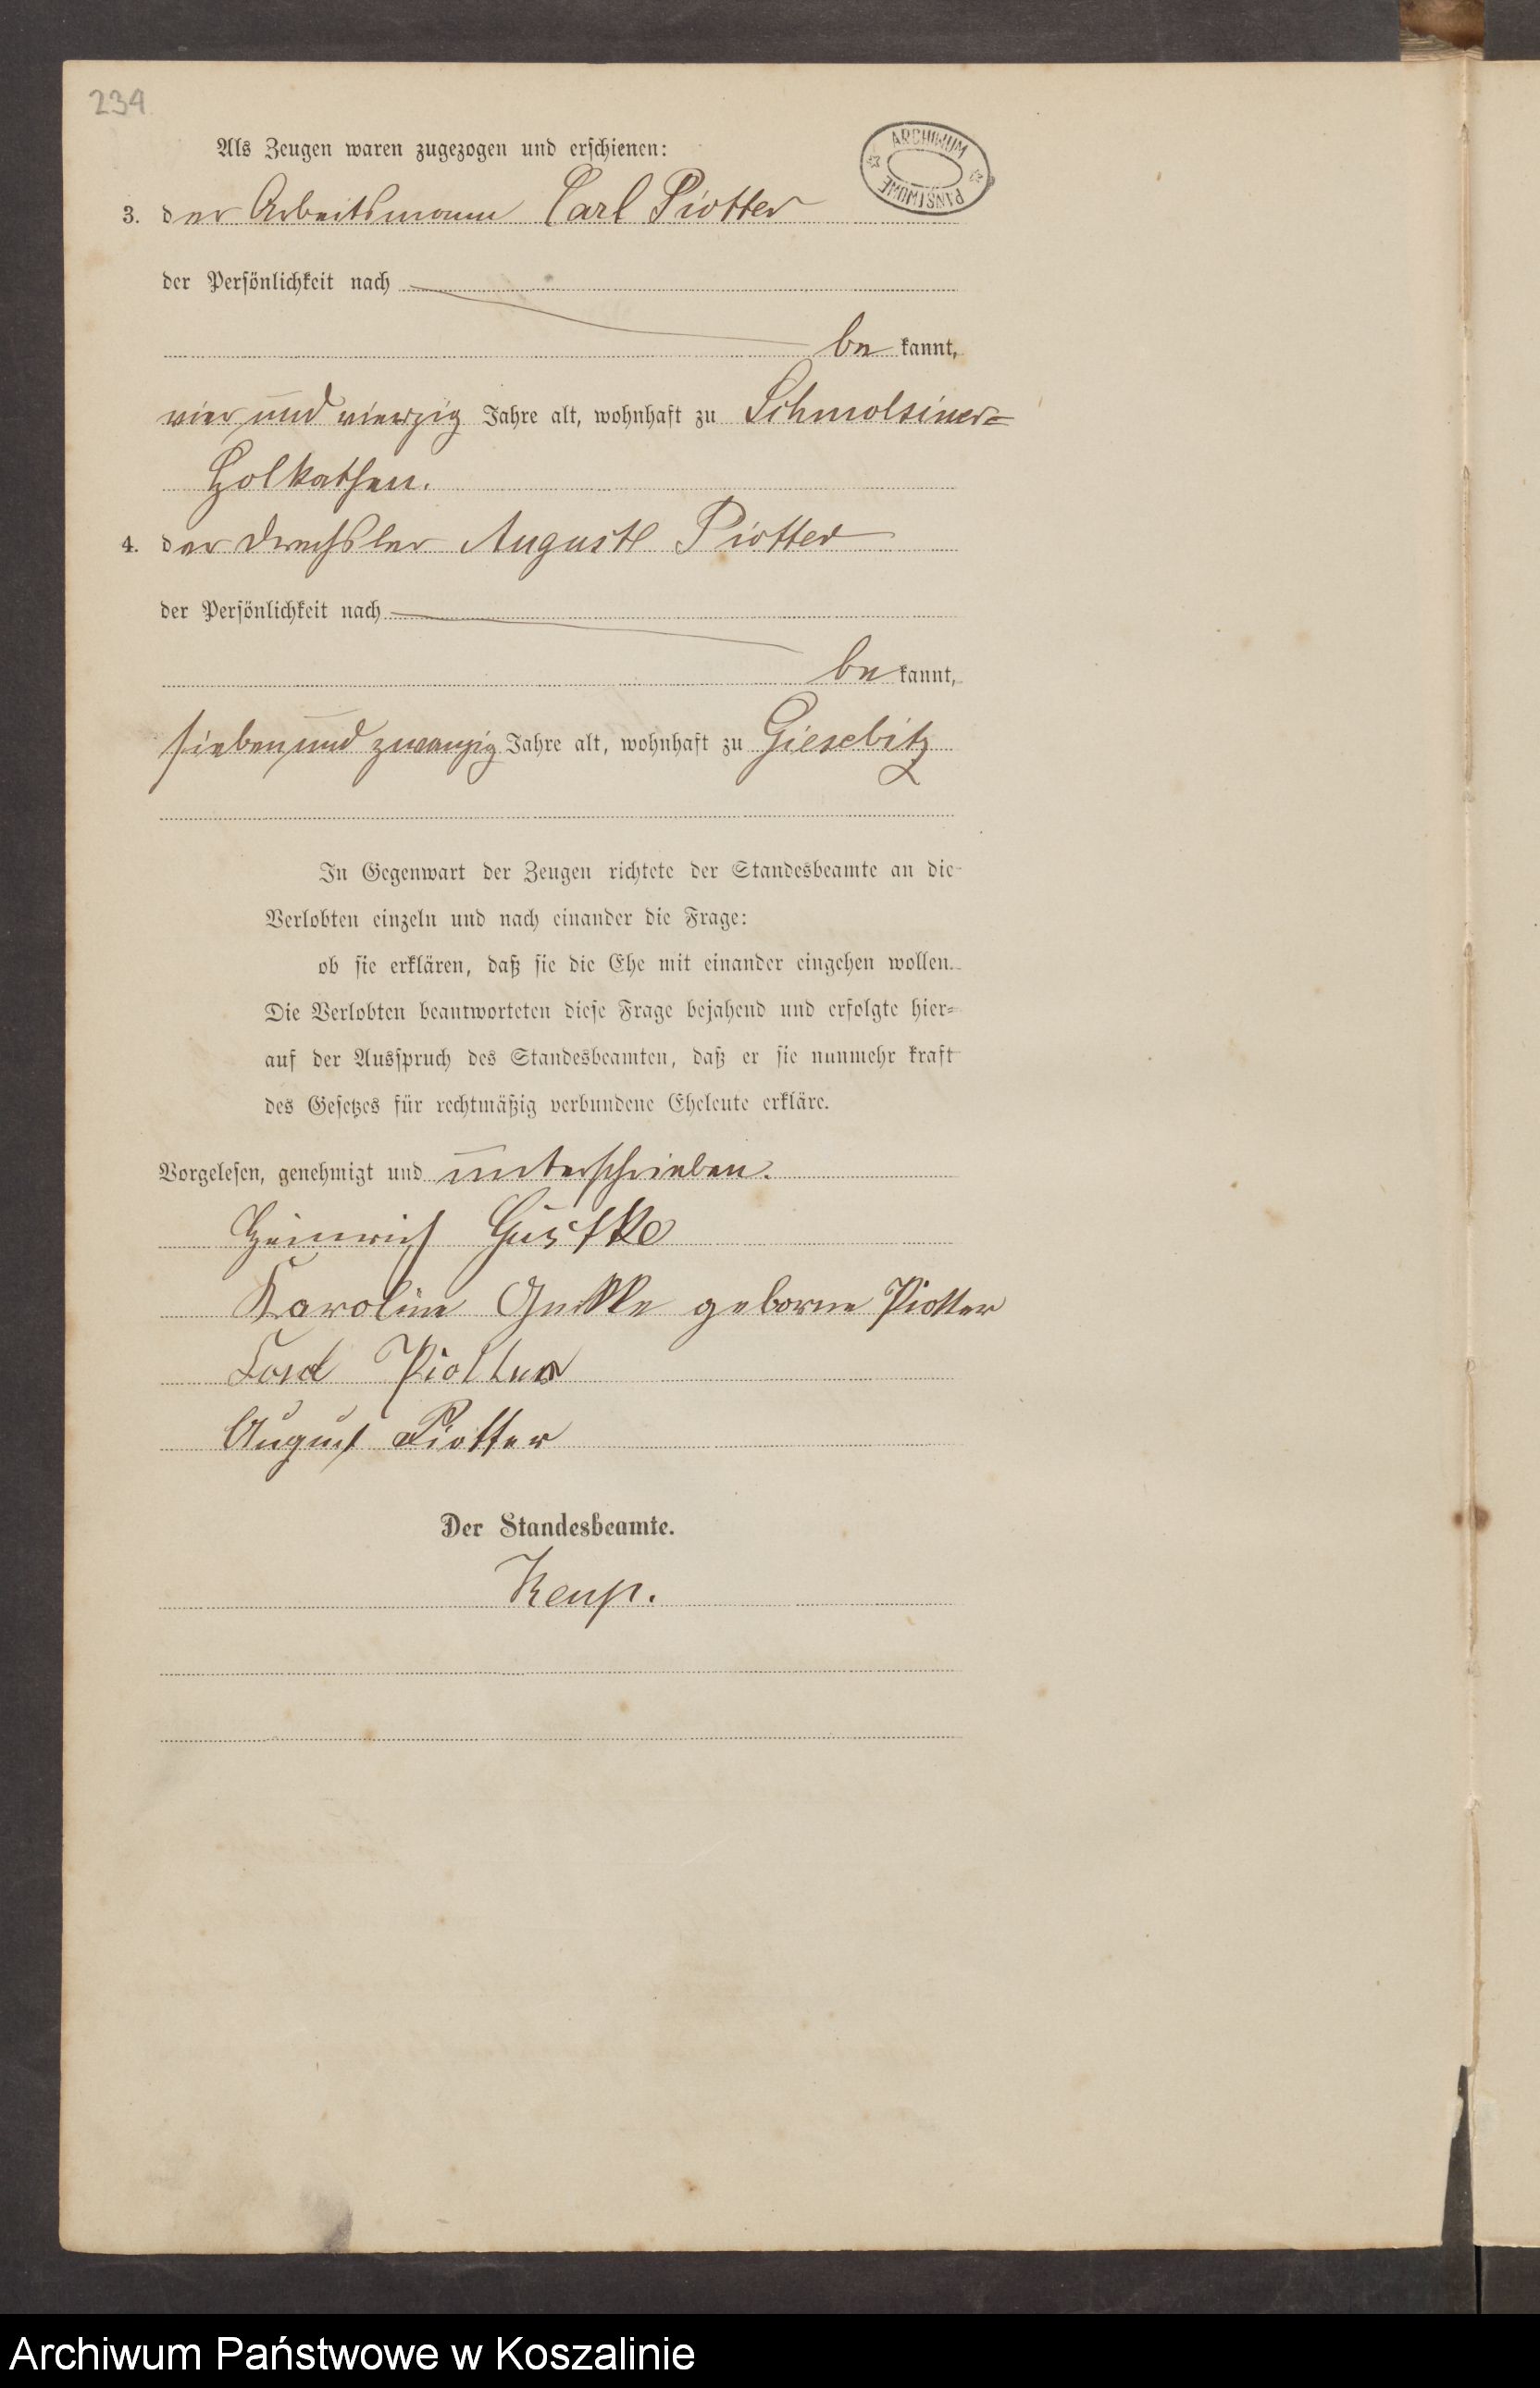 234
Als Zeugen waren zugezogen und erschienen:
ARCHIWUM PAŃSTWOWE
3. der Arbeitsmann Carl Piotter
der Persönlichkeit nach
be kannt,
vier und vierzig Jahre alt, wohnhaft zu Schmolsiner=
Holkathen.
4. der Drechsler August Piotter
der Persönlichkeit nach
be kannt,
sieben und zwanzig Jahre alt, wohnhaft zu Giesebitz
In Gegenwart der Zeugen richtete der Standesbeamte an die
Verlobten einzeln und nach einander die Frage:
ob sie erklären, daß sie die Ehe mit einander eingehen wollen.
Die Verlobten beantworteten diese Frage bejahend und erfolgte hier=
auf der Ausspruch des Standesbeamten, daß er sie nunmehr kraft
des Gesetzes für rechtmäßig verbundene Eheleute erkläre.
Vorgelesen, genehmigt und unterschrieben.
Heinrich Gustke
Karoline geborne Piotter
Piotter
August Piotter
Der Standesbeamte.
Archiwum Państwowe w Koszalinie